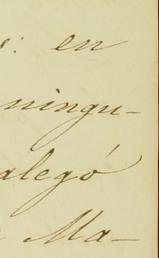 : en
ningu-
alegó
Ma-